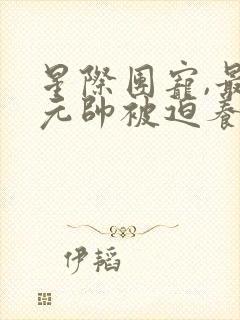 星際團寵,最
元帥被迫養
伊韜